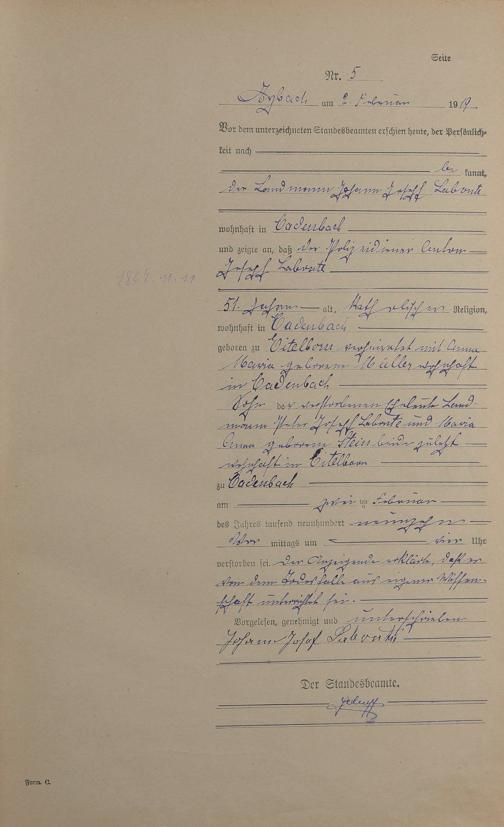 Seite
Nr. 5
am 2. Februar 1919
Vor dem unterzeichneten Standesbeamten erschien heute, der Persönlich-
keit nach
be kannt,
der Landmann Johann Josef Labonte
wohnhaft in Cadenbach
und zeigte an, daß der Polizeidiener Anton
Josef Labonte
1867. 11. 11
51 Jahre alt, katholischen Religion,
wohnhaft in Cadenbach
geboren zu Eitelborn verheiratet mit Anna
Maria geborenen Müller wohnhaft
in Cadenbach
Sohn der verstorbenen Eheleute Land-
mann Peter Josef Labonte und Maria
Anna geborenen beide zuletzt
wohnhaft in Eitelborn
zu Cadenbach
am zwei ten Februar
des Jahres tausend neunhundert neunzehn
Vor mittags um vier Uhr
verstorben sei. Der Anzeigende erklärte, daß er
von dem Todesfalle aus eigener Wissen-
schaft unterrichtet sei.
Vorgelesen, genehmigt und unterschrieben
Johann Josef Labonte
Der Standesbeamte.
Form. C.